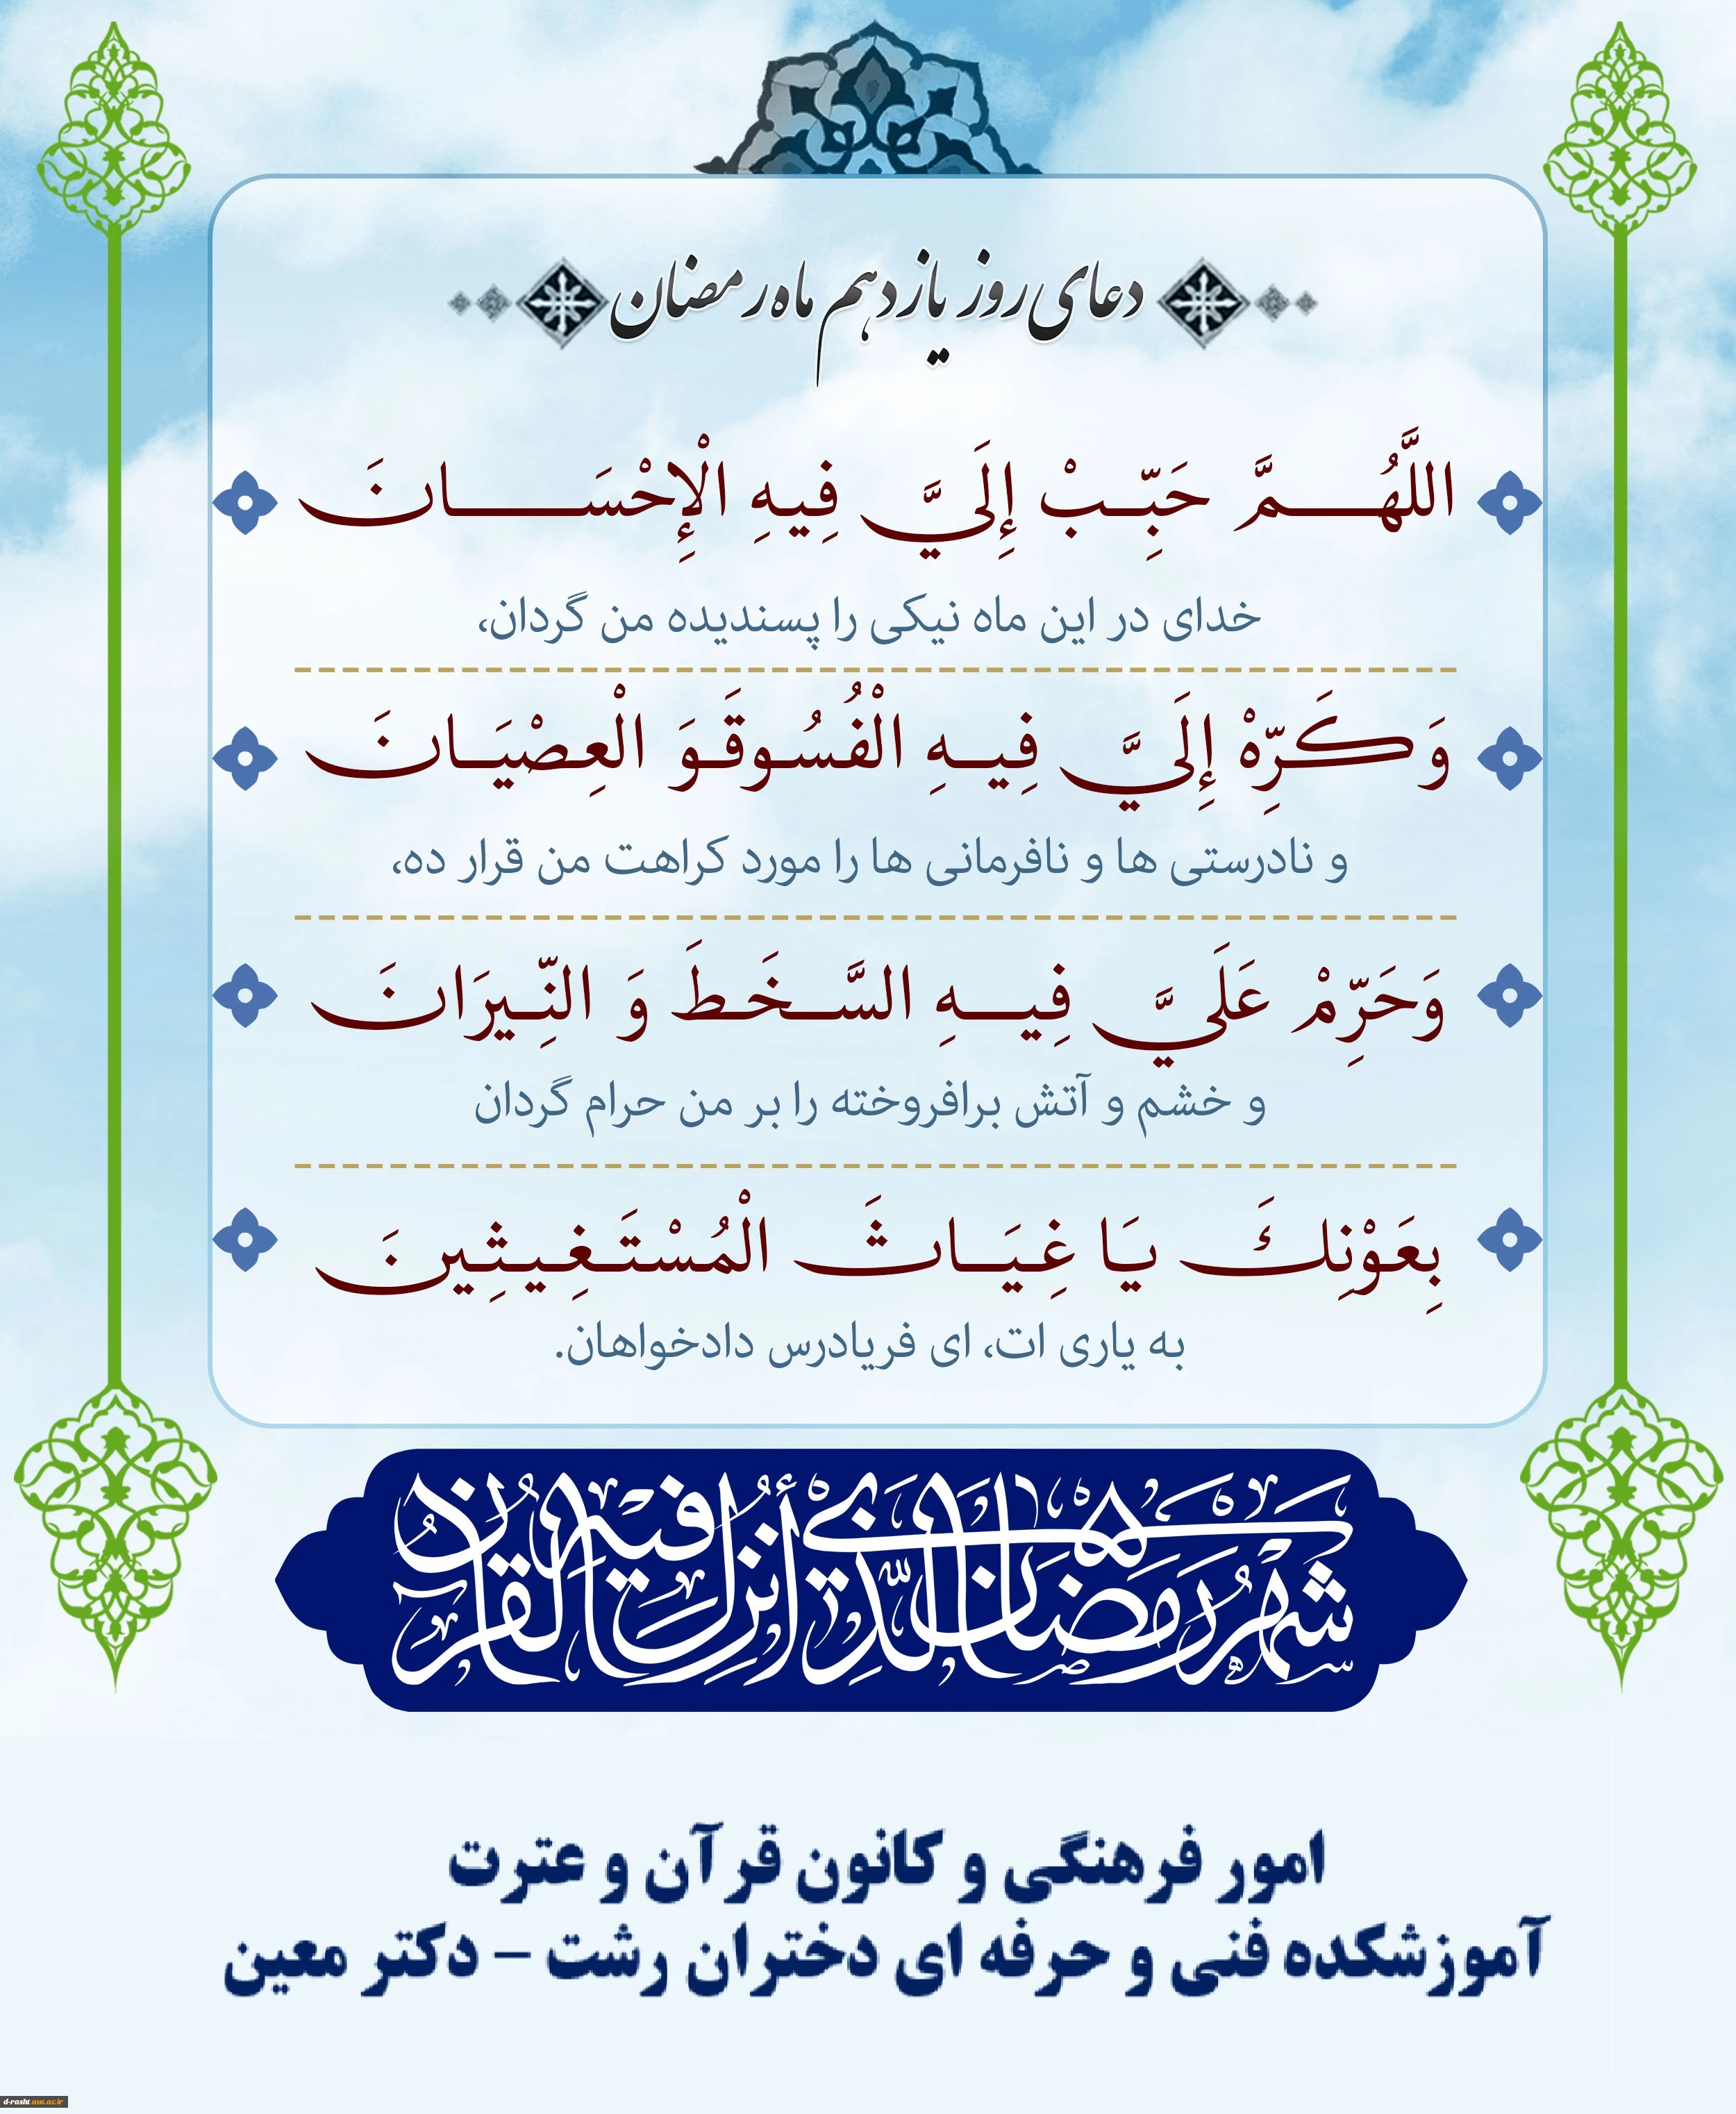 دعای روز یازدهم ماه رمضان
اللَّهُمَّ حَبِّبْ إِلَيَّ فِيهِ الْإِحْسَانَ
خدای در این ماه نیکی را پسندیده من گردان،
وَ كَرِّهْ إِلَيَّ فِيهِ الْفُسُوقَوَ الْعِصْيَانَ
و نادرستی ها و نافرمانی ها را مورد کراهت من قرار ده،
وَحَرِّمْ عَلَيَّ فِيهِ السَّخَطَ وَ النِّيرَانَ
و خشم و آتش برافروخته را بر من حرام گردان
بِعَوْنِكَ يَا غِيَاثَ الْمُسْتَغِيثِينَ
به یاری ات، ای فریادرس دادخواهان.
شهر رمضان الذي أنزل فيه القرآن
امور فرهنگی و کانون قرآن و عترت
آموزشکده فنی و حرفه ای دختران رشت – دکتر معین
d-rasht.nus.ac.ir